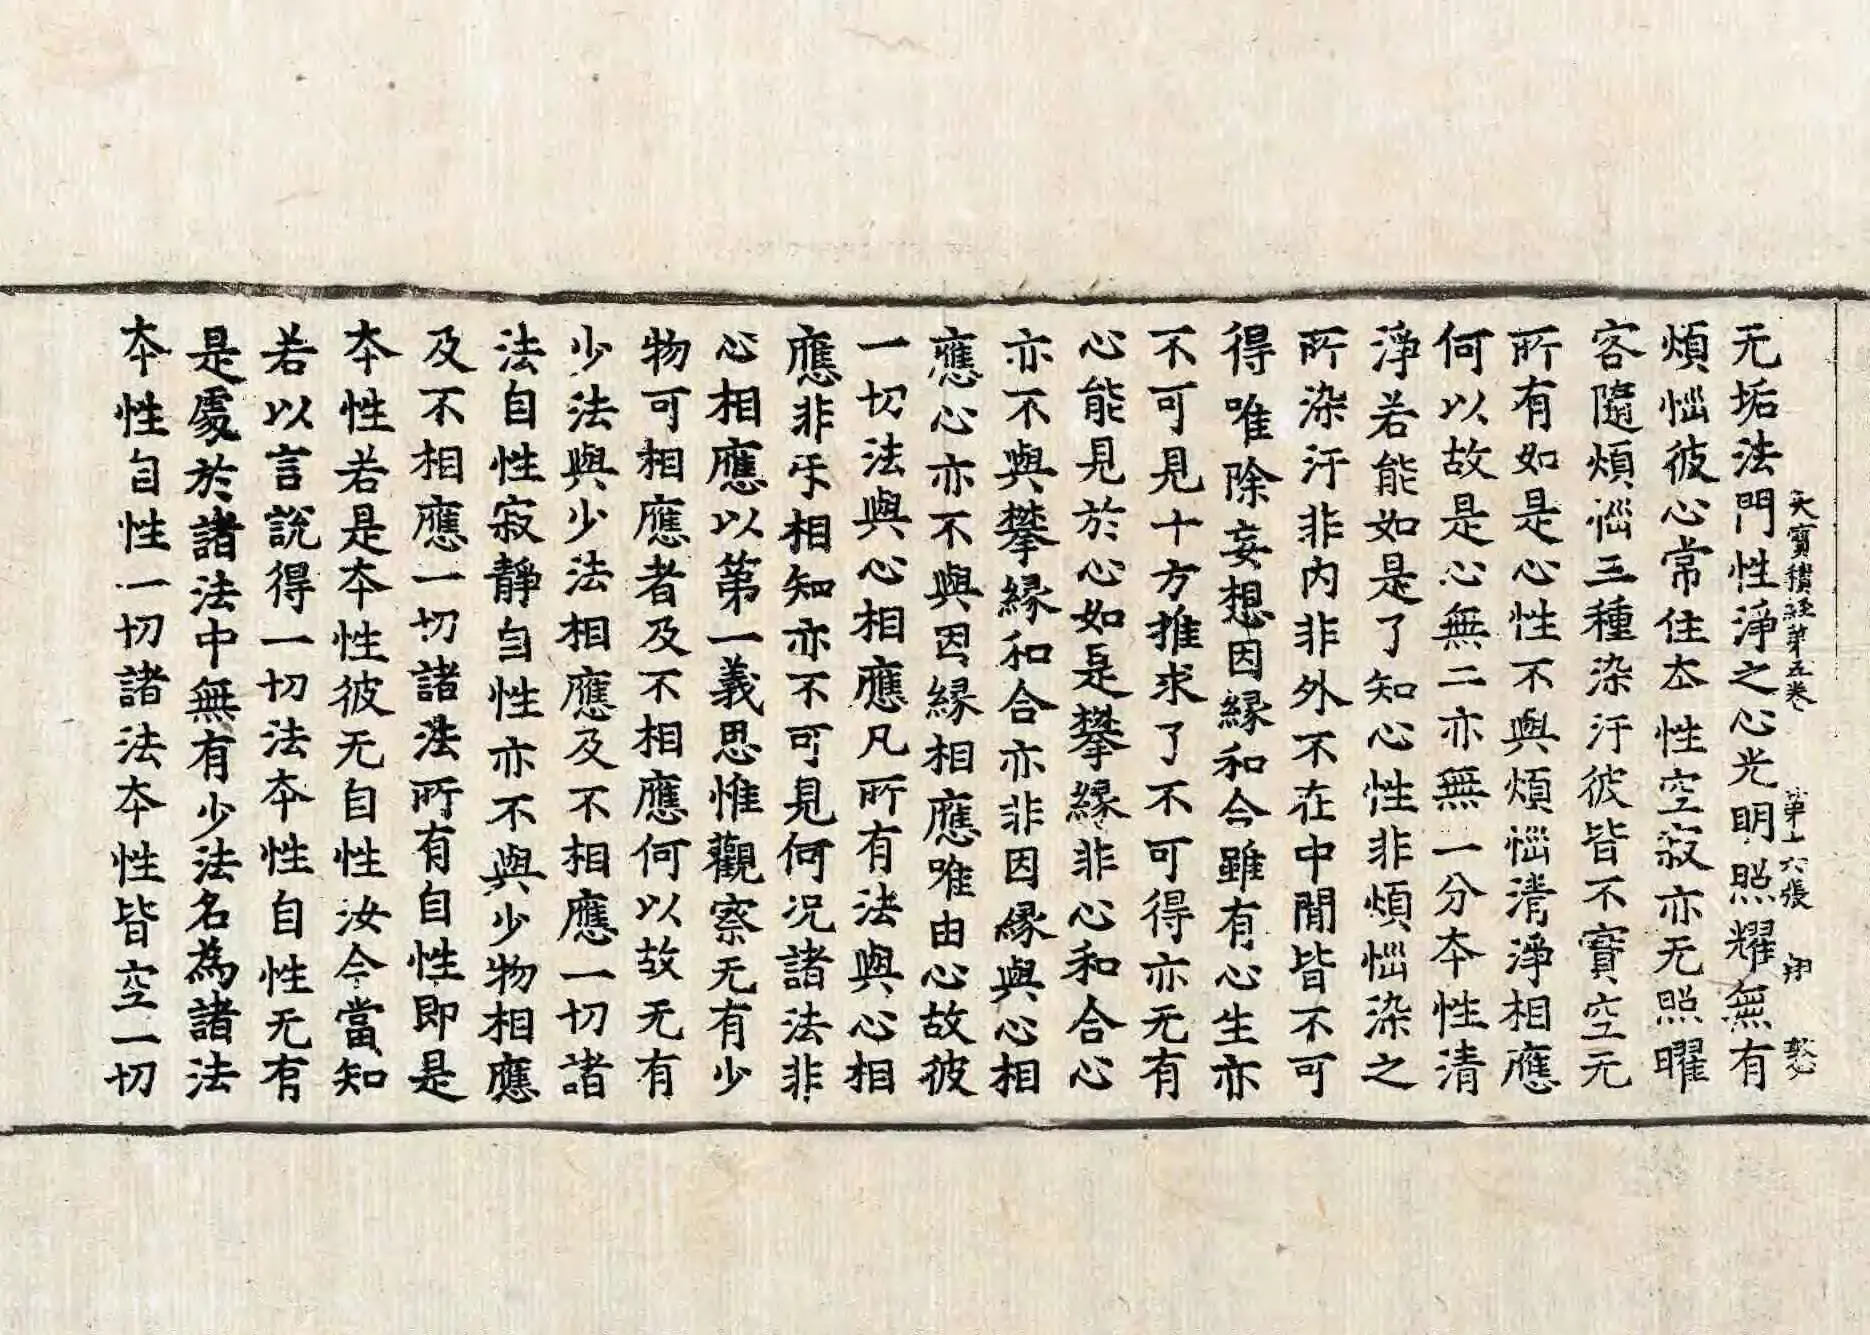 大寶積經第五卷 第十六張 翔
无垢法門性淨之心光明照耀無有
煩惱彼心常住本性空寂亦无照曜
客隨煩惱三種染汙彼皆不實空无
所有如是心性不與煩惱清淨相應
何以故是心無二亦無一分本性清
淨若能如是了知心性非煩惱染之
所染汙非內非外不在中間皆不可
得唯除妄想因緣和合雖有心生亦
不可見十方推求了不可得亦无有
心能見於心如是攀緣非心和合心
亦不與攀緣和合亦非因緣與心相
應心亦不與因緣相應唯由心故彼
一切法與心相應凡所有法與心相
應非乎相知亦不可見何况諸法非
心相應以第一義思惟觀察无有少
物可相應者及不相應何以故无有
少法與少法相應及不相應一切諸
法自性寂靜自性亦不與少物相應
及不相應一切諸法所有自性即是
本性若是本性彼无自性汝今當知
若以言說得一切法本性自性无有
是處於諸法中無有少法名為諸法
本性自性一切諸法本性皆空一切